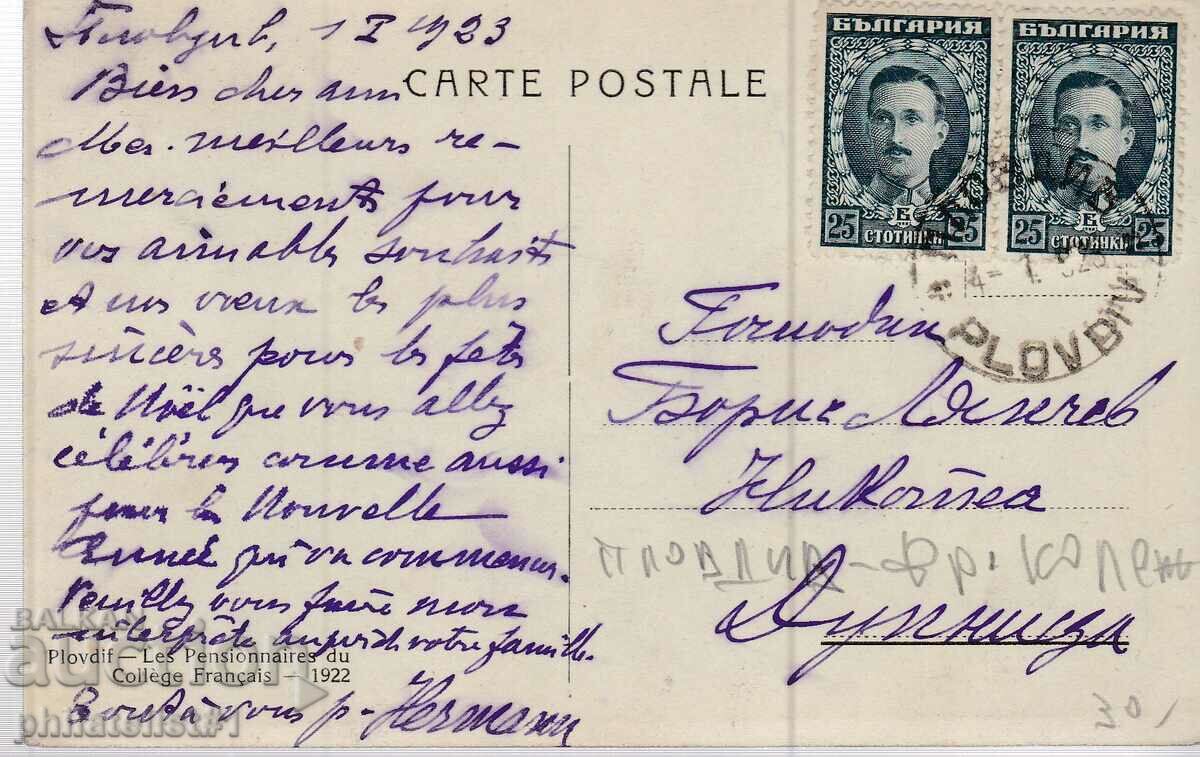 Пловдив, 1 I 1923
Bien cher ami
Mes meilleurs re-
merciements pour
vos aimables souhaits
et nos vœux les plus
sincères pour les fêtes
de Noël que vous allez
célébrer comme aussi
pour la Nouvelle
Année qui va commencer.
Veuillez vous faire mon
interprète auprès de votre famille.
Plovdif — Les Pensionnaires du
Collège Français — 1922
Bout à vous p. Hermann
CARTE POSTALE
БЪЛГАРИЯ
25 СТОТИНКИ 25
БЪЛГАРИЯ
25 СТОТИНКИ 25
ПЛОВДИВ
4- 1. 923
PLOVDIV
Господин
Борис
Дупница
Пловдив - Фр. Колеж
30
BALKAN
auction
philatelist71